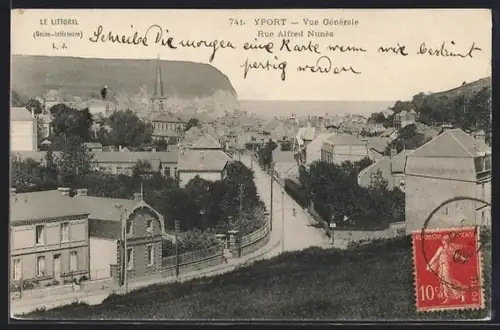 LE LITTORAL
(Seine-Inférieure)
L. J.
741. YPORT — Vue Générale
Rue Alfred Nunès
Schreibe Dir morgen eine Karte wenn wir bestimt
fertig werden
10c
POSTES